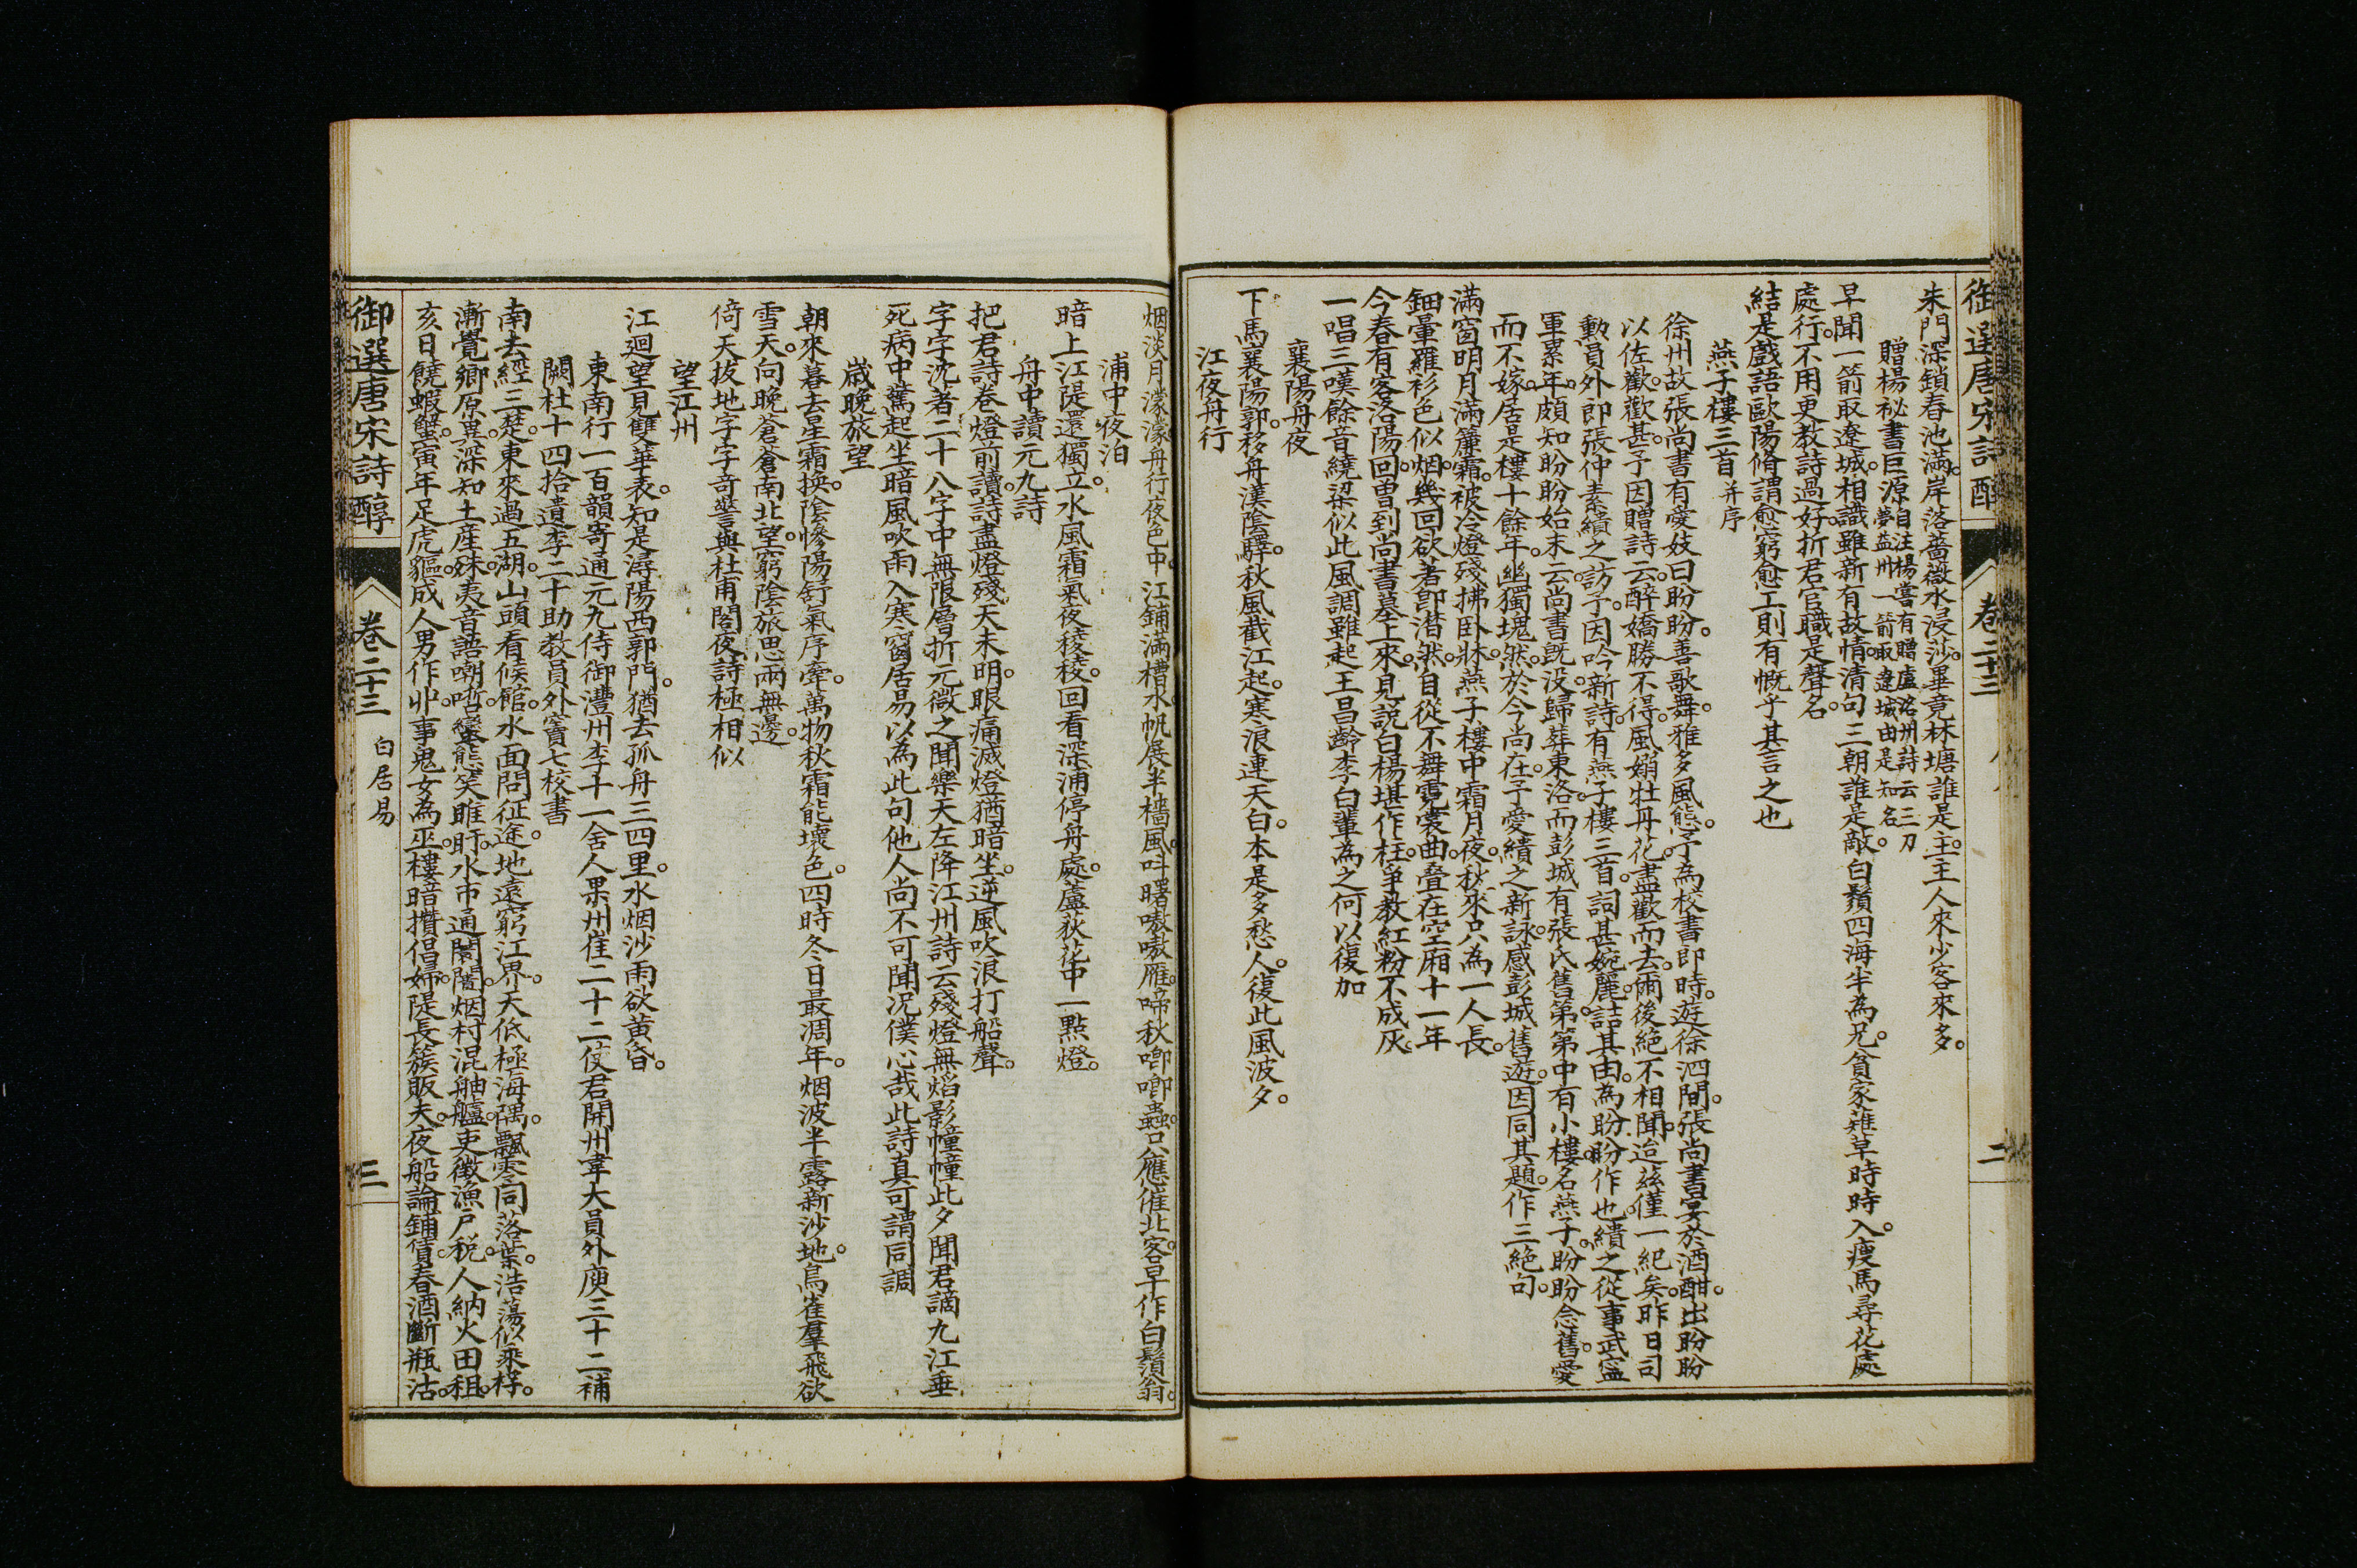 御選唐宋詩醇 卷二十三 二
朱門深鎖春池滿岸落薔薇水浸莎畢竟林塘誰是主主人來少客來多
贈楊秘書巨源自注楊嘗有贈盧洺州詩云三刀
夢益州一箭取遼城由是知名
早聞一箭取遼城相識雖新有故情清句三朝誰是敵白鬚四海半為兄貧家薙草時時入瘦馬尋花處
處行不用更教詩過好折君官職是聲名
結是戲語歐陽脩謂愈窮愈工則有慨乎其言之也
燕子樓三首并序
徐州故張尚書有愛妓曰盼盼善歌舞雅多風態予為校書郎時遊徐泗間張尚書宴於酒酣出盼盼
以佐歡歡甚予因贈詩云醉嬌勝不得風嫋牡丹花盡歡而去爾後絕不相聞迨茲僅一紀矣昨日司
勳員外郎張仲素繢之訪予因吟新詩有燕子樓三首詞甚婉麗詰其由為盼盼作也繢之從事武寧
軍累年頗知盼盼始末云尚書旣没歸葬東洛而彭城有張氏舊第第中有小樓名燕子盼盼念舊愛
而不嫁居是樓十餘年幽獨塊然於今尚在予愛繢之新詠感彭城舊遊因同其題作三絕句
滿窗明月滿簾霜被冷燈殘拂卧牀燕子樓中霜月夜秋來只為一人長
鈿暈羅衫色似烟幾回欲著即潜然自從不舞霓裳曲叠在空廂十一年
今春有客洛陽回曽到尚書墓上來見說白楊堪作柱爭教紅粉不成灰
一唱三嘆餘音繞梁似此風調雖起王昌齡李白輩為之何以復加
襄陽舟夜
下馬襄陽郭移舟漢陰驛秋風截江起寒浪連天白本是多愁人復此風波夕
江夜舟行
烟淡月濛濛舟行夜色中江鋪滿槽水帆展半檣風呌曙嗷嗷雁啼秋唧唧蟲只應催北客早作白鬚翁
浦中夜泊
暗上江隄還獨立水風霜氣夜稜稜回看深浦停舟處蘆荻花中一點燈
舟中讀元九詩
把君詩卷燈前讀詩盡燈殘天未明眼痛滅燈猶暗坐逆風吹浪打船聲
字字沈著二十八字中無限層折元微之聞樂天左降江州詩云殘燈無熖影幢幢此夕聞君謫九江垂
死病中驚起坐暗風吹雨入寒窗居易以為此句他人尚不可聞况僕心哉此詩真可謂同調
歲晚旅望
朝來暮去星霜换陰慘陽舒氣序牽萬物秋霜能壞色四時冬日最凋年烟波半露新沙地鳥雀羣飛欲
雪天向晚蒼蒼南北望窮陰旅思兩無邊
倚天拔地字字奇警與杜甫閣夜詩極相似
望江州
江迴望見雙華表知是潯陽西郭門猶去孤舟三四里水烟沙雨欲黄昏
東南行一百韻寄通元九侍御灃州李十一舍人果州崔二十二使君開州韋大員外庾三十二補
闕杜十四拾遺李二十助教員外竇七校書
南去經三楚東來過五湖山頭看候館水面問征途地遠窮江界天低極海隅飄零同落葉浩蕩似乘桴
漸覺鄉原異深知土産殊夷音語嘲哳蠻態笑睢盱水市通闤闠烟村混舳艫吏徵漁戶稅人納火田租
亥日饒蝦蟹寅年足虎貙成人男作丱事鬼女為巫樓暗攢倡婦隄長簇販夫夜船論鋪賃春酒斷瓶沽
御選唐宋詩醇 卷二十三 白居易 三